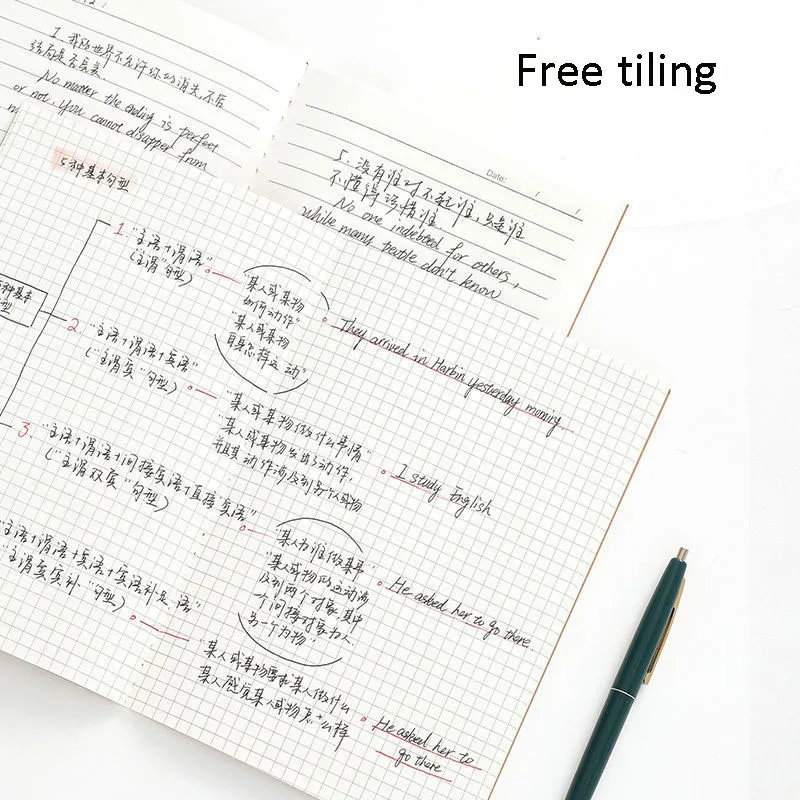 Free tiling
1. 我的世界不允许你的消失,不管
结局是否完美.
No matter the ending is perfect
or not, you cannot disapper from
Date: / /
5. 没有谁对不起谁,只是谁
不懂得珍惜谁.
No one indebted for others,
while many people don't know
5种基本句型
种基本
型
1. "主语+谓语"
("主谓"句型)
"某人或某物
如何动作"
"某人或某物
自身怎样运动"
They arrived in Harbin yesterday morning.
2. "主语+谓语+宾语"
("主谓宾"句型)
"某人或某物做什么事情"
"某人或某物发出了动作,
并且其动作涉及到另个人或物
I study English
3. "主语+谓语+间接宾语+直接宾语"
("主谓双宾"句型)
"某人为谁做某事"
"某人或物的运动涉
及到两个对象,其中
一个间接对象为人.
另一个为物"
He asked her to go there.
主语+谓语+宾语+宾语补足语"
"主谓宾宾补"句型)
"某人或某物要求某人做什么
某人感觉某人或物怎么样
He asked her to
go there